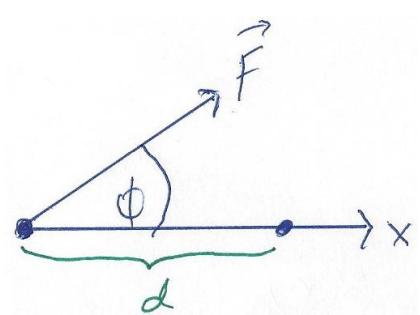 F
ϕ
x
d